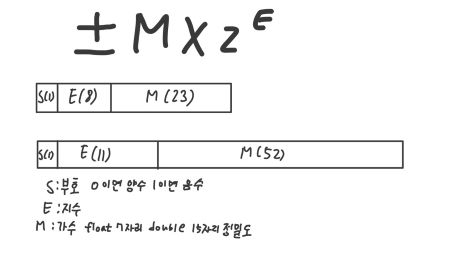 ± M X 2^E
S(1) E(8) M(23)
S(1) E(11) M(52)
S:부호 0이면 양수 1이면 음수
E:지수
M:가수 float 7자리 double 15자리 정밀도